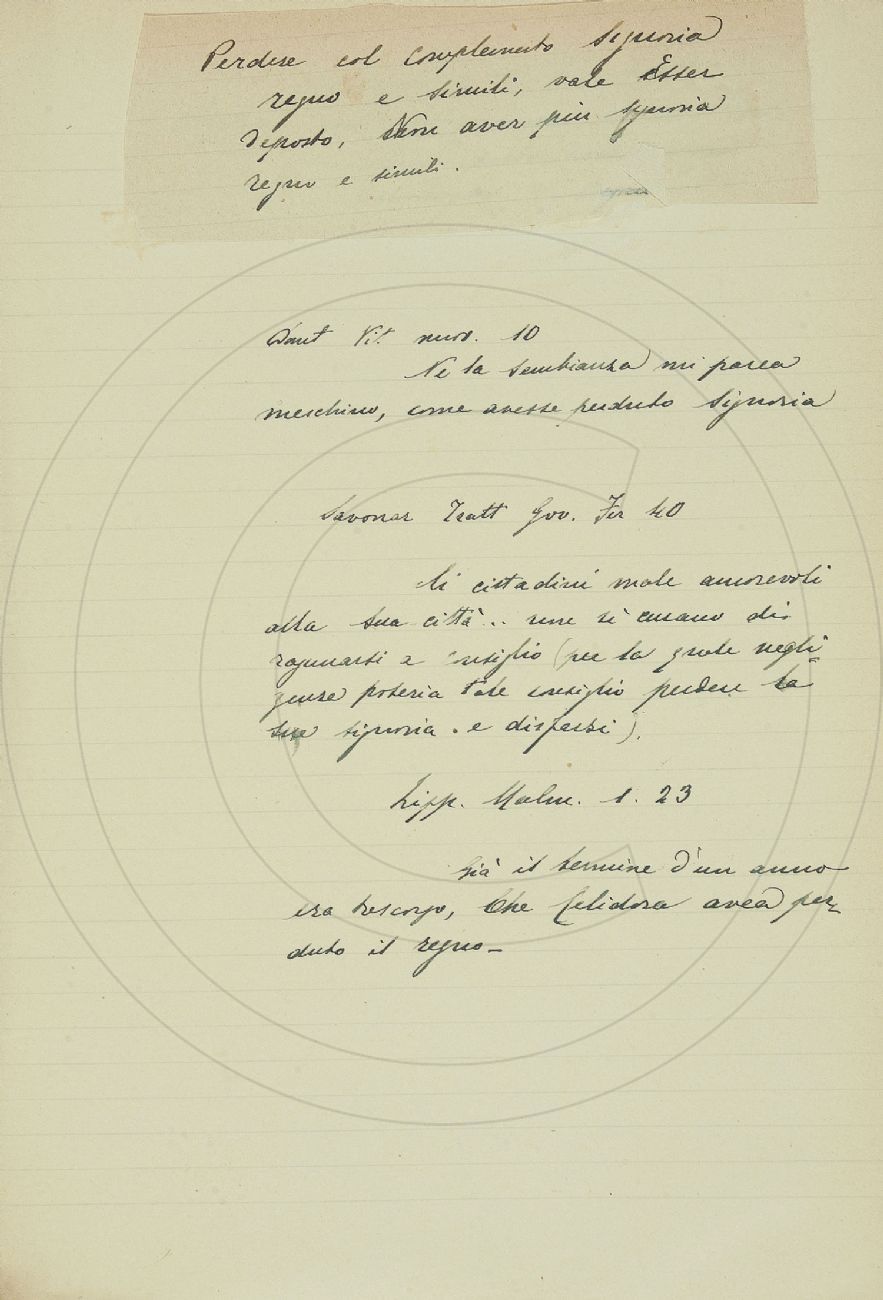 Perdere col complemento Signoria
regno e simili, vale Esser
deposto, Non aver più signoria
regno e simili.
Dant Vit. nuov. 10
Ne la sembianza mi parea
meschino, come avesse perduto Signoria
Savonar Tratt Gov. Fir 40
li cittadini male amorevoli
alla sua città .. non si curano di
ragunarsi a consiglio (per la quale negli=
genza poteria tale consiglio perdere la
sua signoria. e disfarsi).
Lipp. Malm. 1. 23
Già il termine d'un anno
era trascorso, Che Celidora avea per_
duto il regno_